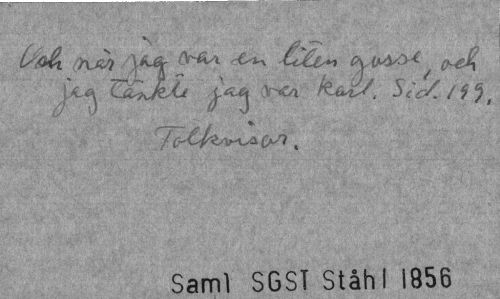 Och när jag var en liten gosse, och
jag tänkte jag var karl. Sid. 199.
Folkvisor.
Saml SGST Ståhl 1856